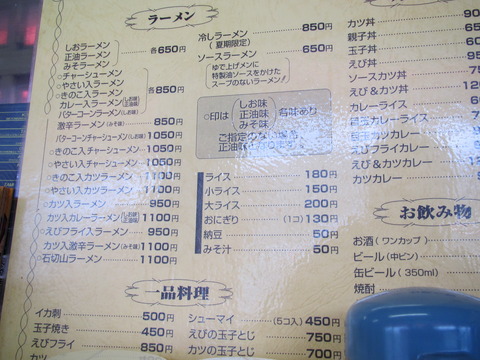 ラーメン
しおラーメン
正油ラーメン
みそラーメン
各650円
○チャーシューメン
○やさい入ラーメン
○きのこ入ラーメン
カレー入ラーメン(しお味 正油味)
バターコーンラーメン(しお味)
各850円
激辛ラーメン(みそ味) 850円
バターコーンチャーシューメン(しお味) 1050円
○きのこ入チャーシューメン 1050円
○やさい入チャーシューメン 1050円
○きのこ入カツラーメン 1100円
○やさい入カツラーメン 1100円
○カツ入ラーメン 950円
カツ入カレーラーメン(しお味 正油味) 1100円
○えびフライ入ラーメン 950円
カツ入激辛ラーメン(みそ味) 1100円
○石切山ラーメン 1100円
冷しラーメン 850円
(夏期限定)
ソースラーメン 650円
ゆで上げメンに
特製油ソースをかけた
スープのないラーメン!!
○印は(しお味 正油味 みそ味)各味あり
ご指定のない場合
正油味
ライス 180円
小ライス 150円
大ライス 200円
おにぎり (1コ) 130円
納豆 50円
みそ汁 50円
一品料理
イカ刺 500円
玉子焼き 450円
えびフライ 850円
カツ
シューマイ (5コ入) 450円
えびの玉子とじ 750円
カツの玉子とじ 700円
カツ丼
親子丼
玉子丼
えび丼
ソースカツ丼
えび&カツ丼
カレーライス
カツカレー
えびフライカレー
えび&カツカレー
カツカレー
お飲み物
お酒(ワンカップ)
ビール(中ビン)
缶ビール(350ml)
焼酎